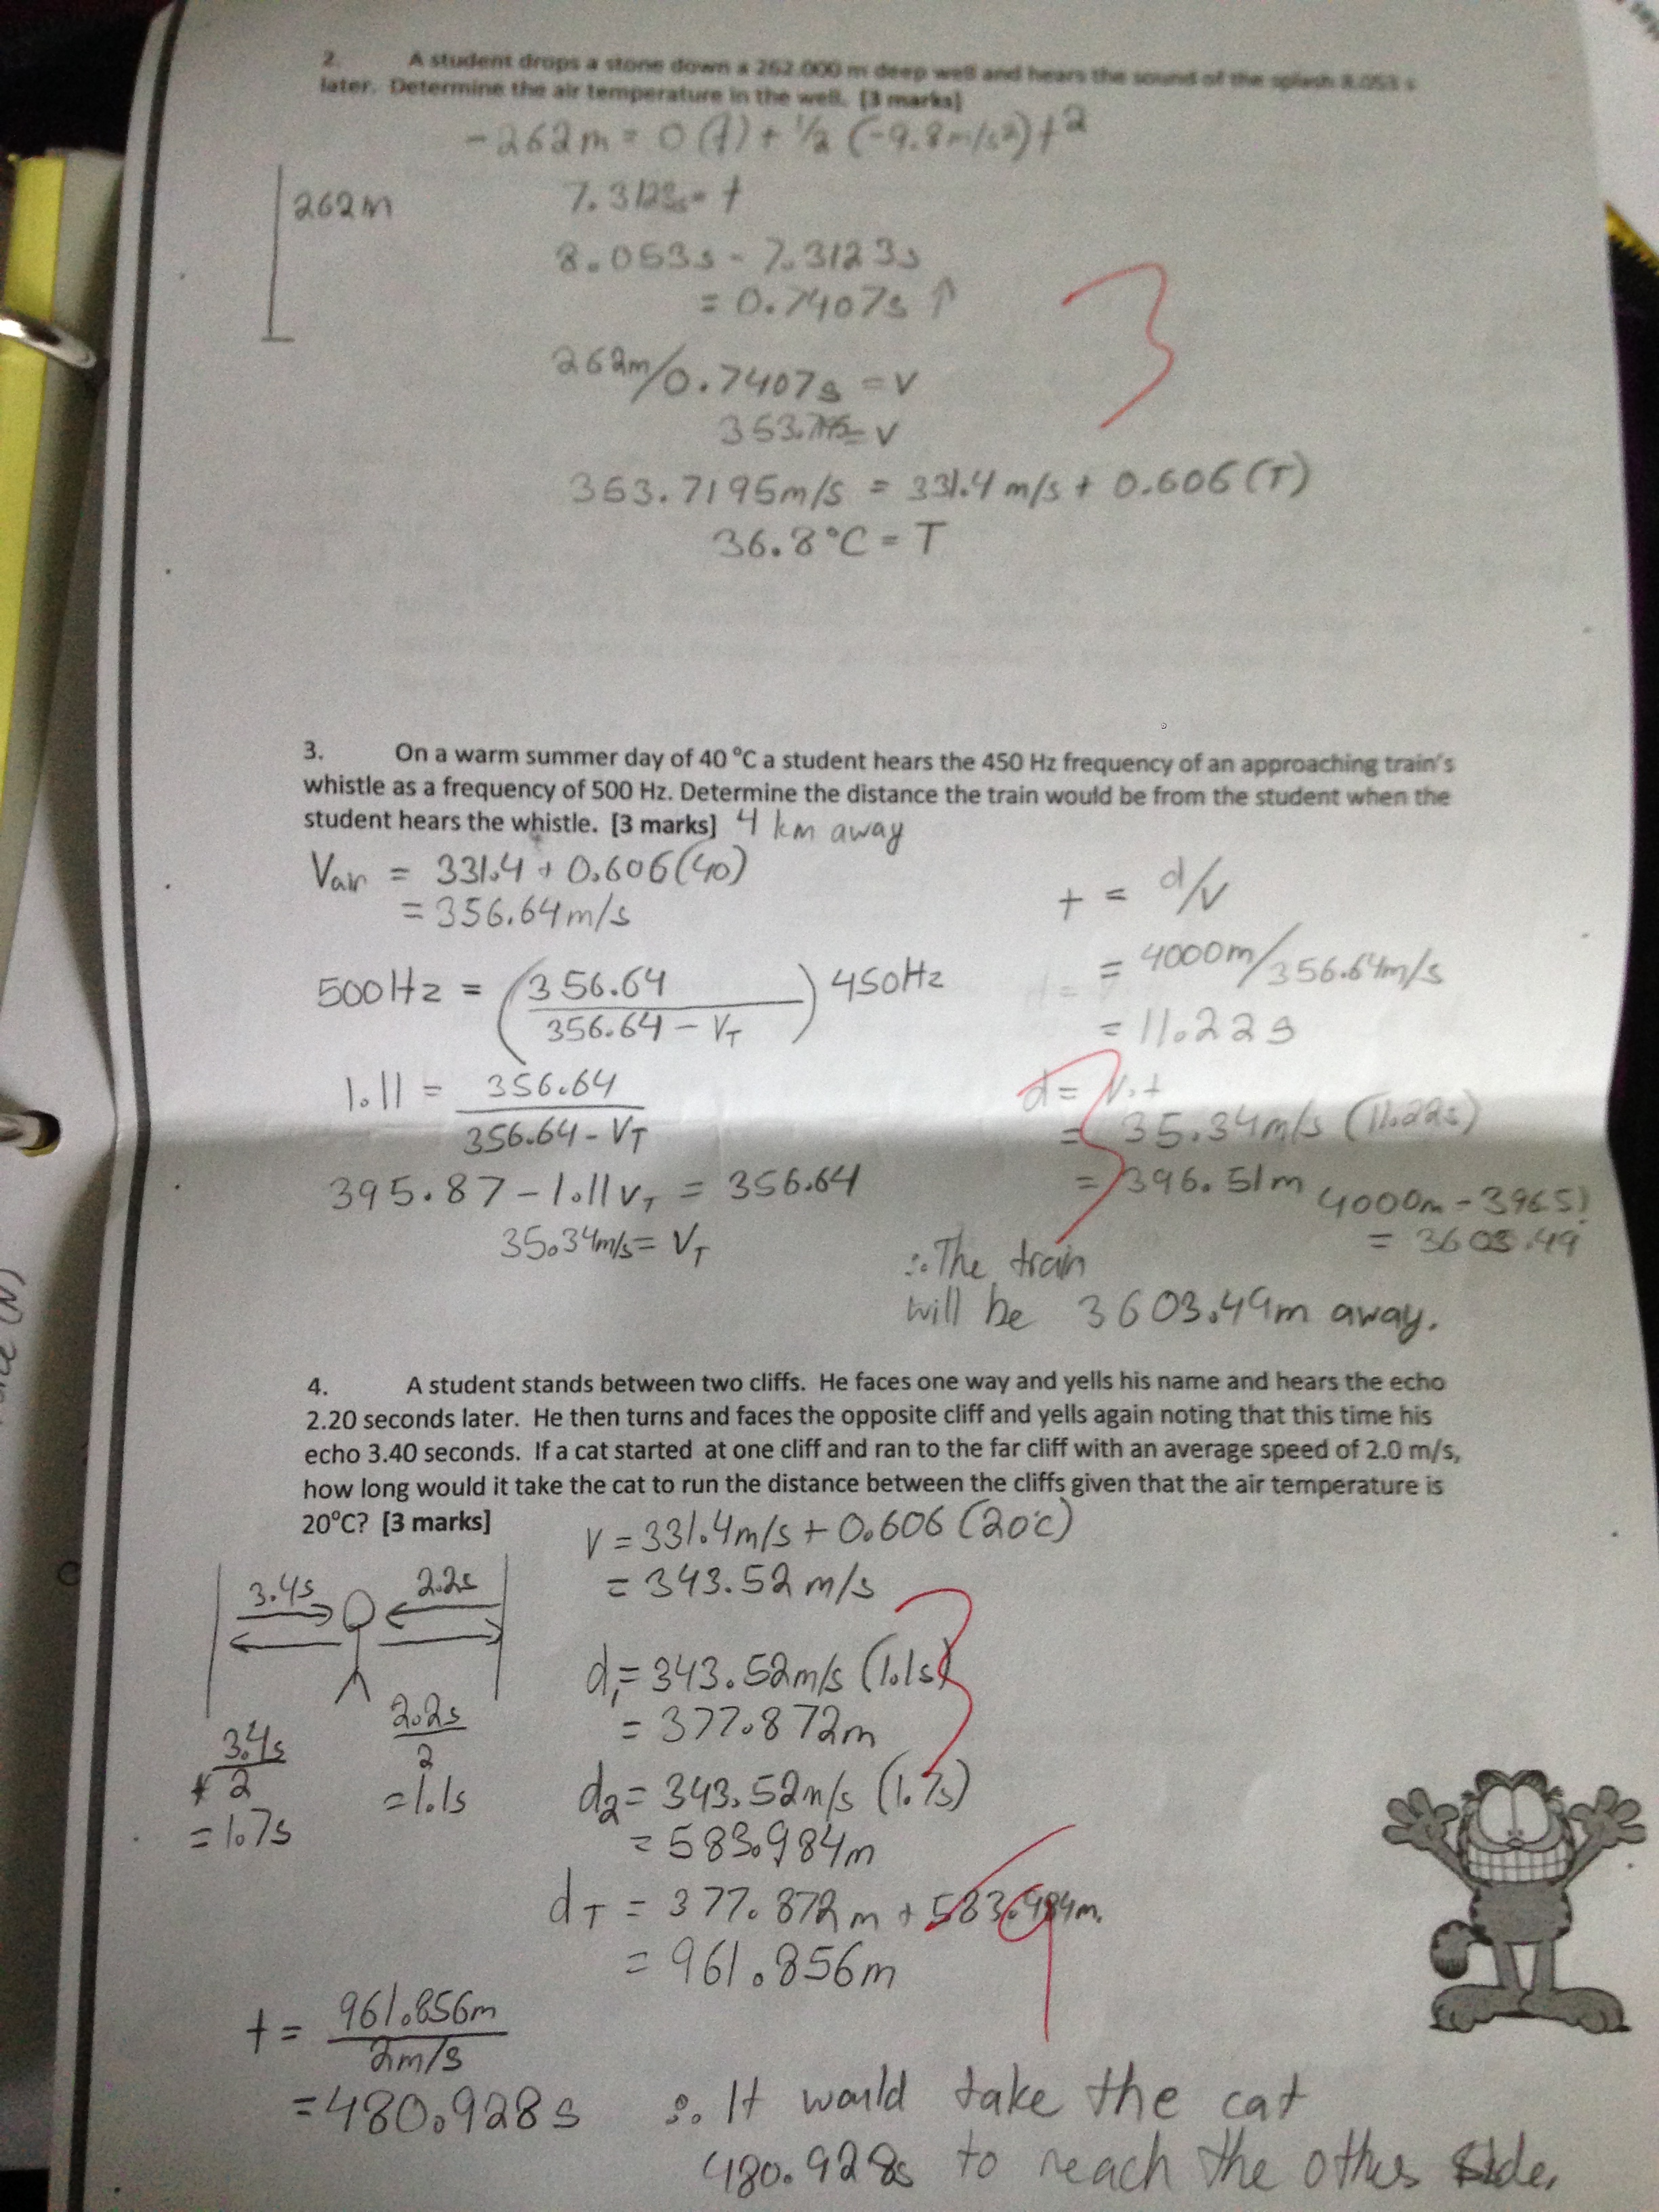 2. A student drops a stone down a 262.000 m deep well and hears the sound of the splash 8.053 s
later. Determine the air temperature in the well. [3 marks]
-262m = 0(t) + 1/2 (-9.8m/s²)t²
262m
7.3123s = t
8.053s - 7.3123s
= 0.7407s ↑
3
262m/0.7407s = v
353. = v
353.7195m/s = 331.4 m/s + 0.606(T)
36.8°C = T
3. On a warm summer day of 40 °C a student hears the 450 Hz frequency of an approaching train's
whistle as a frequency of 500 Hz. Determine the distance the train would be from the student when the
student hears the whistle. [3 marks] 4 km away
Vair = 331.4 + 0.606(40)
= 356.64m/s
500Hz = (356.64 / 356.64 - VT) 450Hz
1.11 = 356.64 / 356.64 - VT
395.87 - 1.11VT = 356.64
35.34m/s = VT
t = d/v
= 4000m/356.64m/s
= 11.22s
d = v.t
= 35.34m/s (11.22s)
= 396.51m
3
4000m - 396.51
= 3603.49
∴ The train
will be 3603.49m away.
4. A student stands between two cliffs. He faces one way and yells his name and hears the echo
2.20 seconds later. He then turns and faces the opposite cliff and yells again noting that this time his
echo 3.40 seconds. If a cat started at one cliff and ran to the far cliff with an average speed of 2.0 m/s,
how long would it take the cat to run the distance between the cliffs given that the air temperature is
20°C? [3 marks]
V = 331.4m/s + 0.606 (20°C)
= 343.52 m/s
3.4s 2.2s
3.4s / 2
= 1.7s
2.2s / 2
= 1.1s
d1 = 343.52m/s (1.1s)
= 377.872m
3
d2 = 343.52m/s (1.7s)
= 583.984m
dT = 377.872m + 583.984m.
= 961.856m
9
t = 961.856m / 2m/s
= 480.928s
∴ It would take the cat
480.928s to reach the other side.